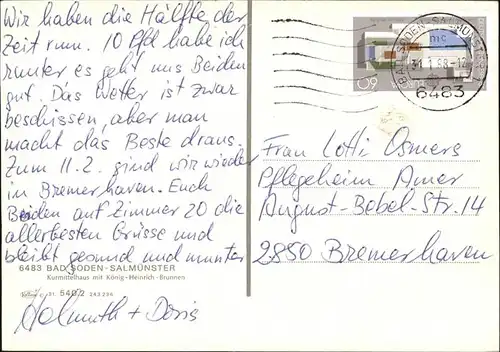 Wir haben die Hälfte der
Zeit rum. 10 Pfd habe ich
runter es geht uns Beiden
gut. Das Wetter ist zwar
beschissen, aber man
macht das Beste draus.
Zum 11.2. sind wir wieder
in Bremerhaven. Euch
Beiden auf Zimmer 20 die
allerbesten Grüsse und
bleibt gesund und munter
6483 BAD SODEN-SALMÜNSTER
Kurmittelhaus mit König-Heinrich-Brunnen
Helmuth + Doris
BAD SODEN-SALMÜNSTER
6483
60
Frau Lotti Osmers
Pflegeheim Amer
August-Bebel-Str. 14
2850 Bremerhaven